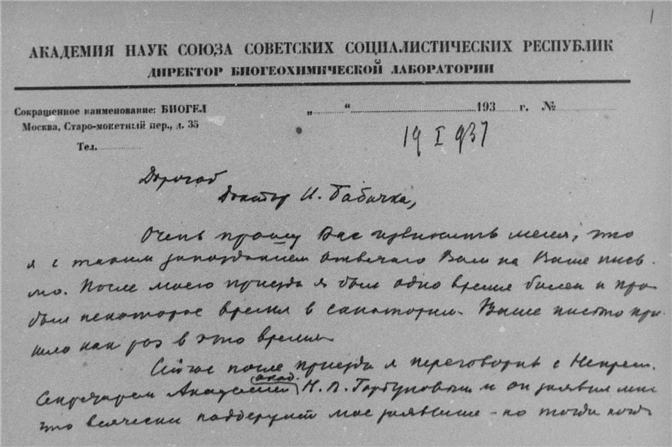 1
АКАДЕМИЯ НАУК СОЮЗА СОВЕТСКИХ СОЦИАЛИСТИЧЕСКИХ РЕСПУБЛИК
ДИРЕКТОР БИОГЕОХИМИЧЕСКОЙ ЛАБОРАТОРИИ
Сокращенное наименование: БИОГЕЛ
Москва, Старо-мокетный пер., д. 35
Тел.
„ “ 193 г. №
19 I 937
Дорогой
Доктор И. Бабичка,
Очень прошу Вас извинить меня, что
я с таким запозданием отвечаю Вам на Ваше пись-
мо. После моего приезда я был одно время болен и про-
был некоторое время в санатории. Ваше письмо при-
шло как раз в это время.
после приезда я переговорил с Непрем.
Секретарем Академии акад. Н. П. Горбуновым и он заявил мне
что всячески поддержит мое заявление - но тогда когда